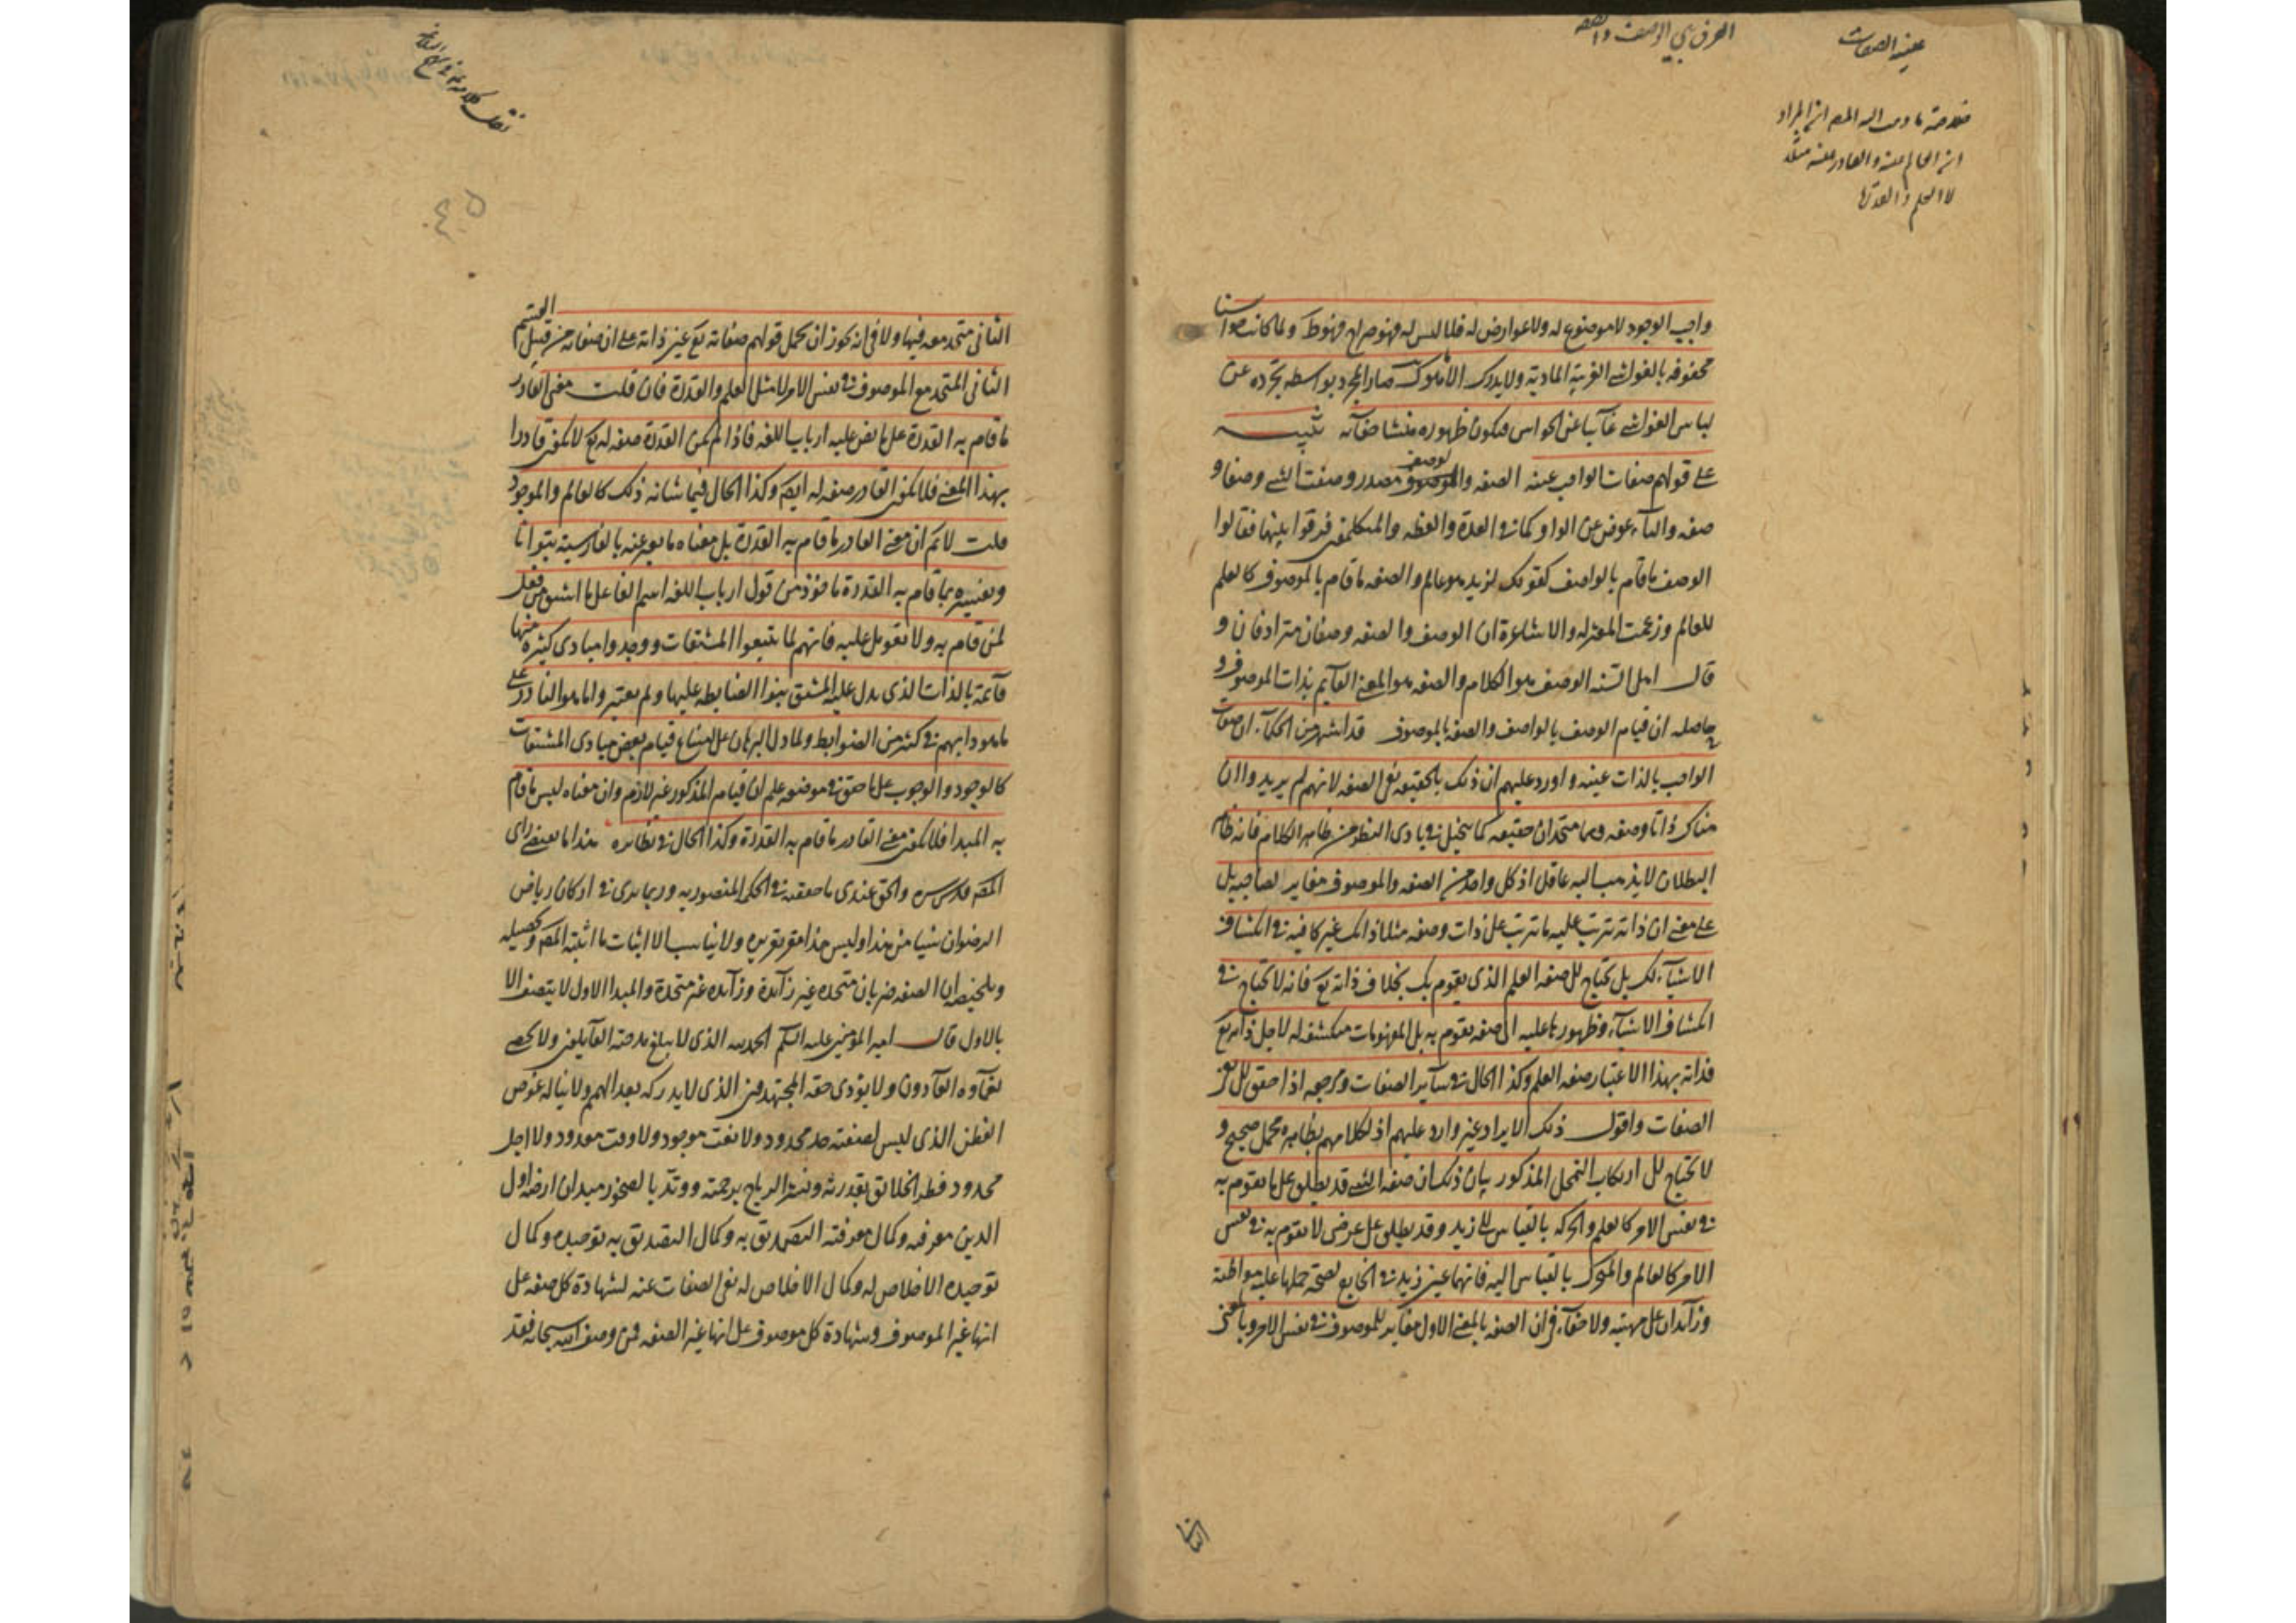 عينية الصفات
الفرق بين الوصف والصفة
خلاصة ما ذهب اليه المص ان المراد
ان العالم عينه والقادر عينه مثلا
لا العلم والقدرة
واجب الوجود لا موضوع له ولا عوارض له فلا لبس له فهو صراح فهو ظ ولما كانت حواسنا
محفوفه بالغواشى الغريبة المادية ولا يدرك الا
لباس الغواشى غايبا عن الحواس فيكون ظهوره منشا خفائه تنبيه
على قولهم صفات الواجب عينه الصفه والوصف مصدر وصفت الشى وصفا و
صفه والتاء عوض عن الواو كما فى العدة والعظه والمتكلمين فرقوا بينهما فقالوا
الوصف ما قام بالواصف كقولك لزيد هو عالم والصفه ما قام بالموصوف كالعلم
للعالم وزعمت المعتزله والاشاعرة ان الوصف والصفه وصفان مترادفان و
قال اهل السنه الوصف هو الكلام والصفه هو المعنى القايم بذات الموصوف و
حاصله ان قيام الوصف بالواصف والصفه بالموصوف قد اشتهر من الحكماء ان صفات
الواجب بالذات عينه واورد عليهم ان ذلك بالحقيقه نفى الصفه لانهم لم يريدوا ان
هناك ذاتا وصفه وهما متحدان حقيقه كما يتخيل فى بادى النظر من ظاهر الكلام فانه ظاهر
البطلان لا يذهب اليه عاقل اذ كل واحد من الصفه والموصوف مغاير لصاحبه بل
على معنى ان ذاته تترتب عليه ما تترتب على ذات وصفه مثلا ذاتك غير كافيه فى انكشاف
الاشياء لك بل تحتاج الى صفه العلم الذى يقوم بك بخلاف ذاته تع فانه لا تحتاج فى
انكشاف الاشياء وظهورها عليه الى صفه تقوم به بل المفهومات منكشفه له لاجل ذاته تع
فذاته بهذا الاعتبار صفه العلم وكذا الحال فى ساير الصفات ومرجعه اذا حقق الى نفى
الصفات واقول ذلك الايراد غير وارد عليهم اذ لكلامهم بظاهره محمل صحيح و
لا تحتاج الى ارتكاب التمحل المذكور بيان ذلك ان صفه الشى قد يطلق على ما يقوم به
فى نفس الامر كالعلم والحركه بالقياس الى زيد وقد يطلق على عرضى لا يقوم به فى نفس
الامر كالعالم والمتحرك بالقياس اليه فانهما عين زيد فى الخارج لصحة حملها عليه مواطاة
وزايدان على مهيته ولا خفاء فى ان الصفه بالمعنى الاول مغاير للموصوف فى نفس الامر وبالمعنى
الثانى
نقل كلامه ع فى نهج البلاغه
الثانى متحد معه فيها ولا فى انه يجوز ان يحمل قولهم صفاته تع عين ذاته على ان صفاته من قبيل القسم
الثانى المتحد مع الموصوف فى نفس الامر لا مثل العلم والقدرة فان قلت معنى القادر
ما قام به القدرة على ما نص عليه ارباب اللغه فاذا لم يكن القدرة صفه له تع لا يكون قادرا
بهذا المعنى فلا يكون القادر صفه له ايضا وكذا الحال فيما شانه ذلك كالعالم والموجود
قلت لا نم ان معنى القادر ما قام به القدرة بل معناه ما يعبر عنه بالفارسية بتوانا
وتفسيره بما قام به القدرة ماخوذ من قول ارباب اللغه اسم الفاعل ما اشتق من فعل
لمن قام به ولا تعويل عليه فانهم لما تتبعوا المشتقات ووجدوا مبادى كثيرة منها
قائمة بالذات الذى يدل عليه المشتق بنوا الضابطه عليها ولم يعتبروا ما هو النادر على
ما هو دابهم فى كثير من الضوابط ولما دل البرهان على امتناع قيام بعض مبادى المشتقات
كالوجود والوجوب على ما حقق فى موضعه علم ان قيام المذكور غير لازم وان معناه ليس ما قام
به المبدا فلا يكون معنى القادر ما قام به القدرة وكذا الحال فى نظائره هذا ما يقتضى راى
المص قدس سره والحق عندى ما حققته فى الحكم المنصوريه وربما يرى فى اركان رياض
الرضوان شيئا من هذا وليس هذا مقر تقريره ولا يناسب الا اثبات ما اثبته المص وتحصيله
وتلخيصه ان الصفه ضربان متحده غير زائدة وزائده غير متحدة والمبدا الاول لا يتصف الا
بالاول قال امير المؤمنين عليه السلم الحمد لله الذى لا يبلغ مدحته القايلون ولا يحصى
نعماءه العادون ولا يؤدى حقه المجتهدون الذى لا يدركه بعد الهمم ولا يناله غوص
الفطن الذى ليس لصفته حد محدود ولا نعت موجود ولا وقت معدود ولا اجل
محدود فطر الخلائق بقدرته ونشر الرياح برحمته ووتد بالصخور ميدان ارضه اول
الدين معرفته وكمال معرفته التصديق به وكمال التصديق به توحيده وكمال
توحيده الاخلاص له وكمال الاخلاص له نفى الصفات عنه لشهادة كل صفه على
انها غير الموصوف وشهادة كل موصوف على انها غير الصفه فمن وصف الله سبحانه فقد